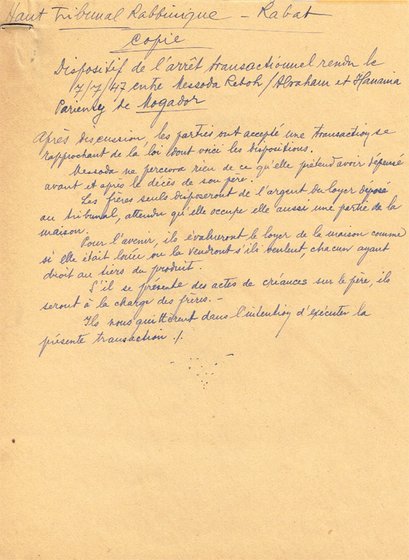 Haut Tribunal Rabbinique - Rabat
Copie
Dispositif de l'arrêt transactionnel rendu le
7/7/47 entre Messoda Reboh / Abraham et Hanania
Parienty de Mogador
Après discussion, les parties ont accepté une transaction se
rapprochant de la loi dont voici les dispositions.
Messoda ne percevra rien de ce qu'elle prétend avoir dépensé
avant et après le décès de son père.
Les frères seuls disposeront de l'argent du loyer déposé
au tribunal, attendu qu'elle occupe elle aussi une partie de la
maison.
Pour l'avenir, ils évalueront le loyer de la maison comme
si elle était louée ou la vendront s'ils veulent, chacun ayant
droit au tiers du produit.
S'il se présente des actes de créances sur le père, ils
seront à la charge des frères. -
Ils nous quittèrent dans l'intention d'exécuter la
présente transaction ./.